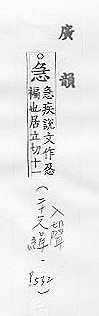 廣韻
○急
急疾說文作㤂
褊也居立切十一
(入聲
二十六緝．P532)